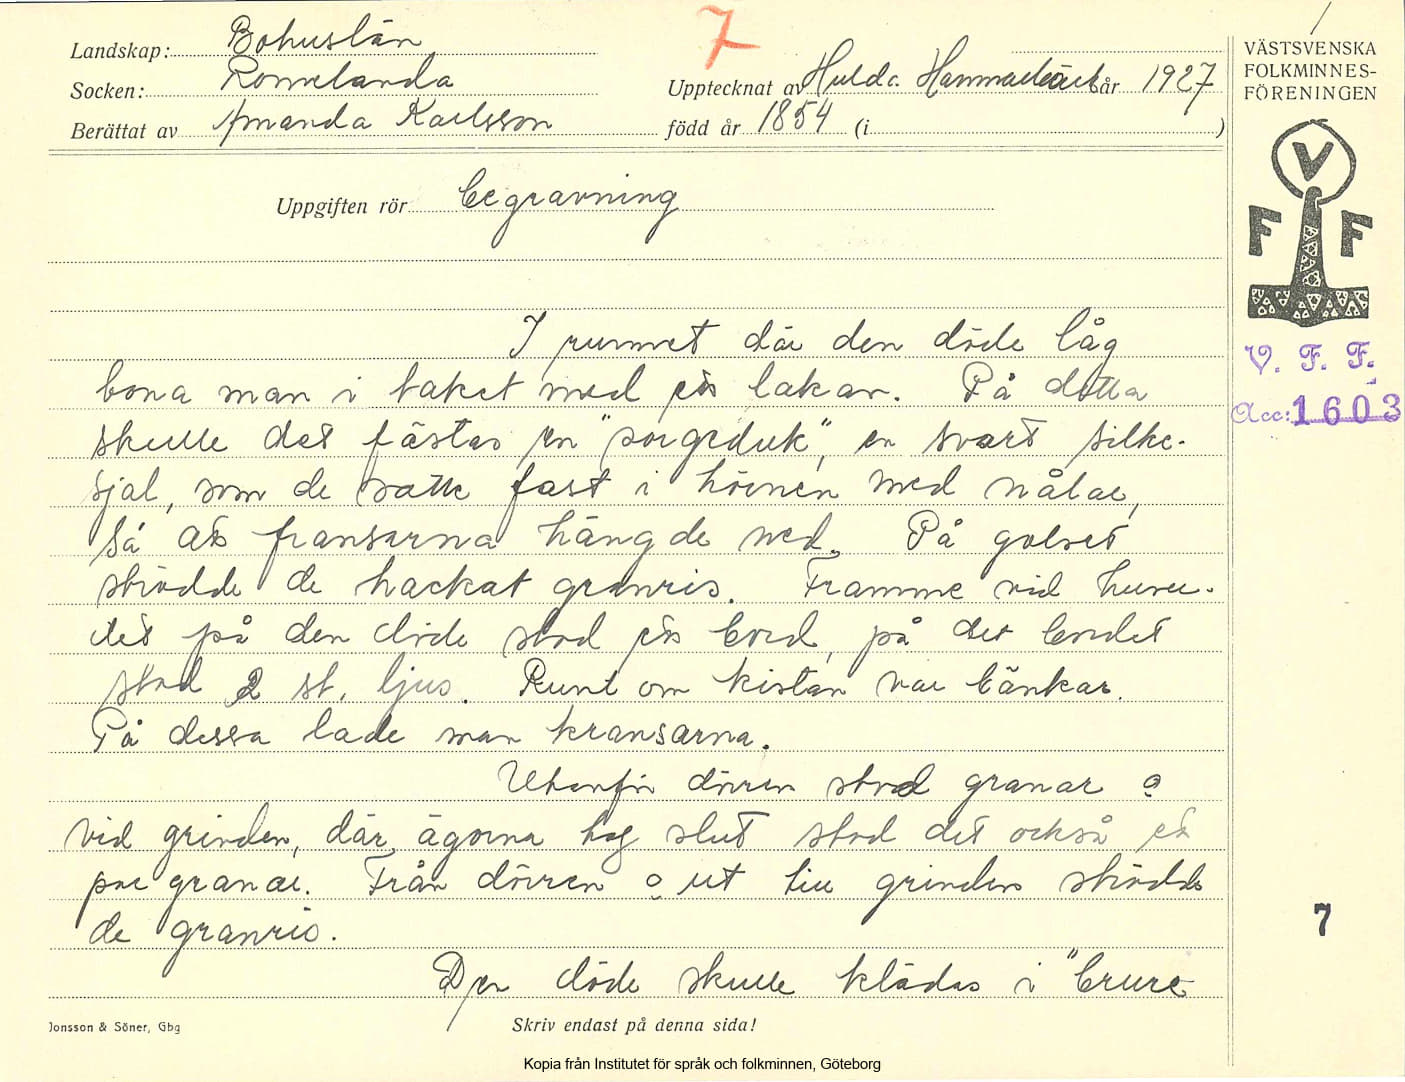 7
Landskap: Bohuslän
Socken: Romelanda
Upptecknat av Hulda Hammarbäck år 1927
Berättat av Amanda Karlsson född år 1854 (i )
VÄSTSVENSKA
FOLKMINNES-
FÖRENINGEN
V
F F
V. F. F.
Acc: 1603
7
Uppgiften rör begravning
I rummet där den döde låg
bona man i taket med ett lakan. På detta
skulle det fästas en "sorgeduk", en svart silke-
sjal, som de satte fast i hörnen med nålar,
så att fransarna hängde ned. På golvet
strödde de hackat granris. Framme vid huvu-
det på den döde stod ett bord, på det bordet
stod 2 st. ljus. Runt om kistan var bänkar.
På dessa lade man kransarna.
Utanför dörren stod granar o
vid grinden, där ägorna tog slut stod det också ett
par granar. Från dörren o ut till grinden strödde
de granris.
Den döde skulle klädas i "brure
Jonsson & Söner, Gbg
Skriv endast på denna sida!
Kopia från Institutet för språk och folkminnen, Göteborg